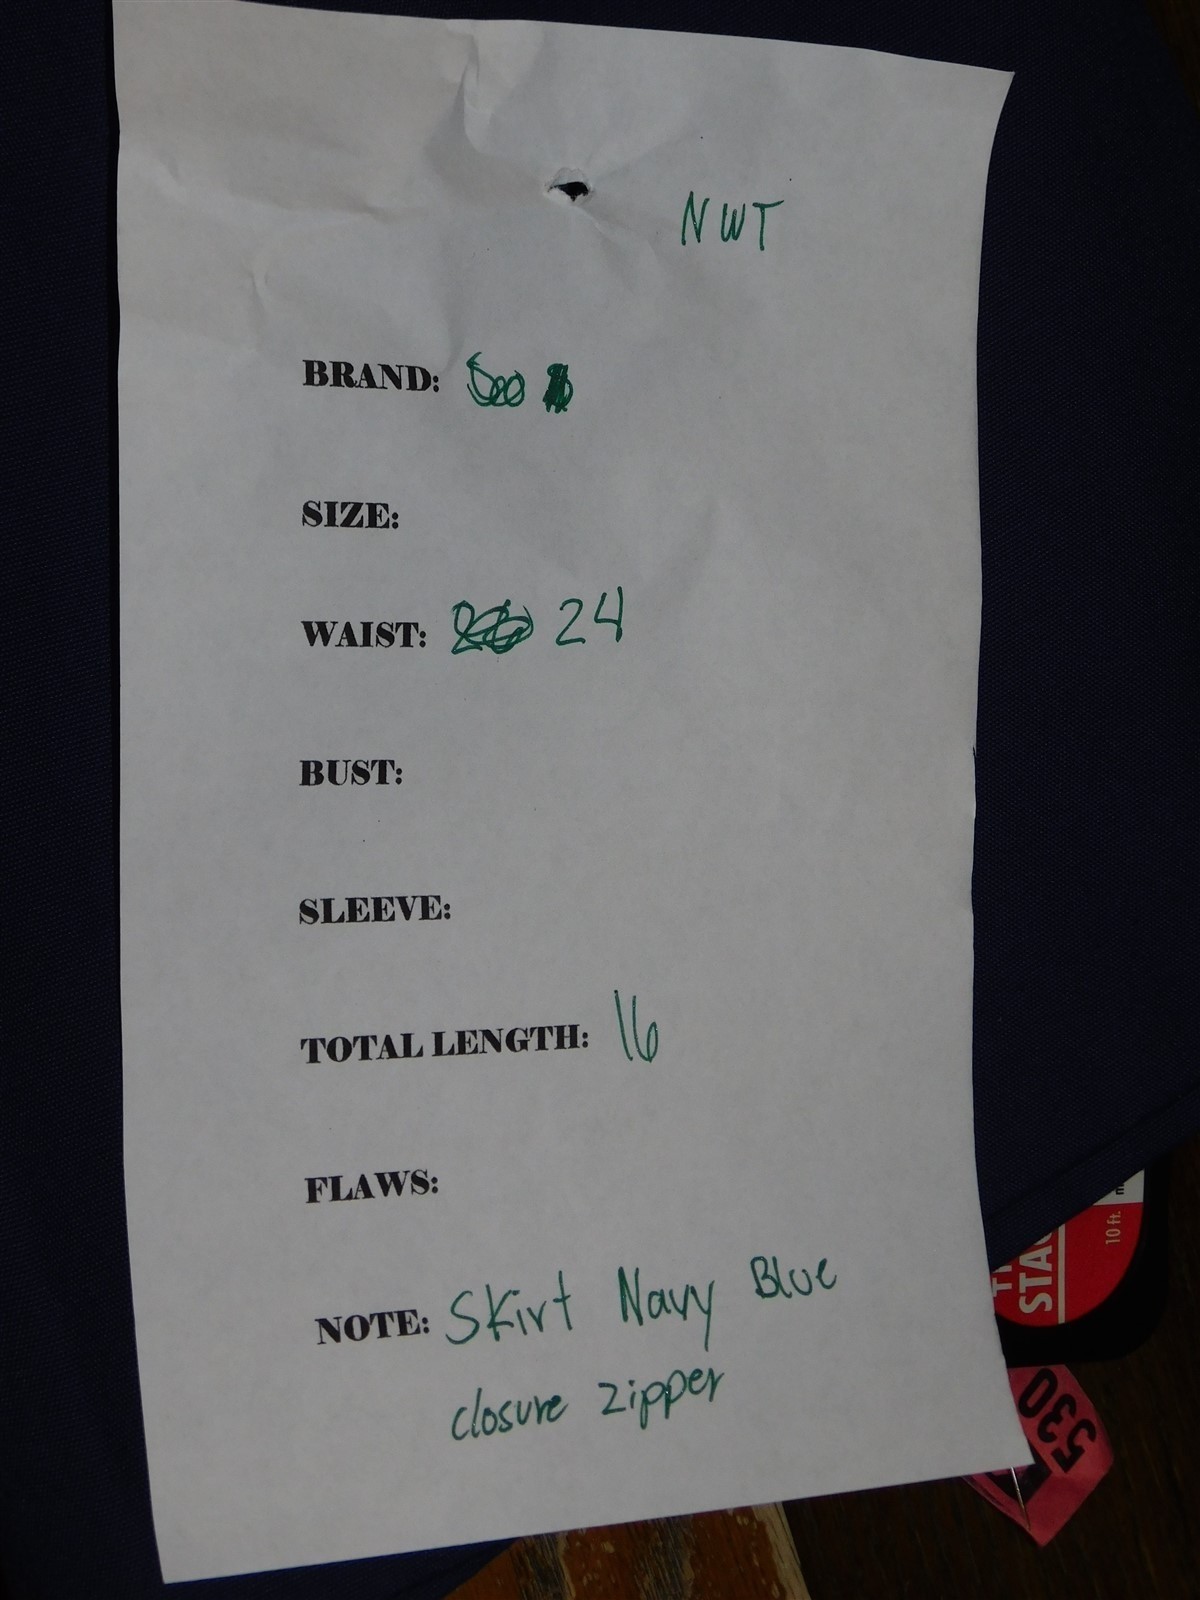 NWT
BRAND:
SIZE:
WAIST: 24
BUST:
SLEEVE:
TOTAL LENGTH: 16
FLAWS:
NOTE: Skirt Navy Blue
closure zipper
10 ft.
530